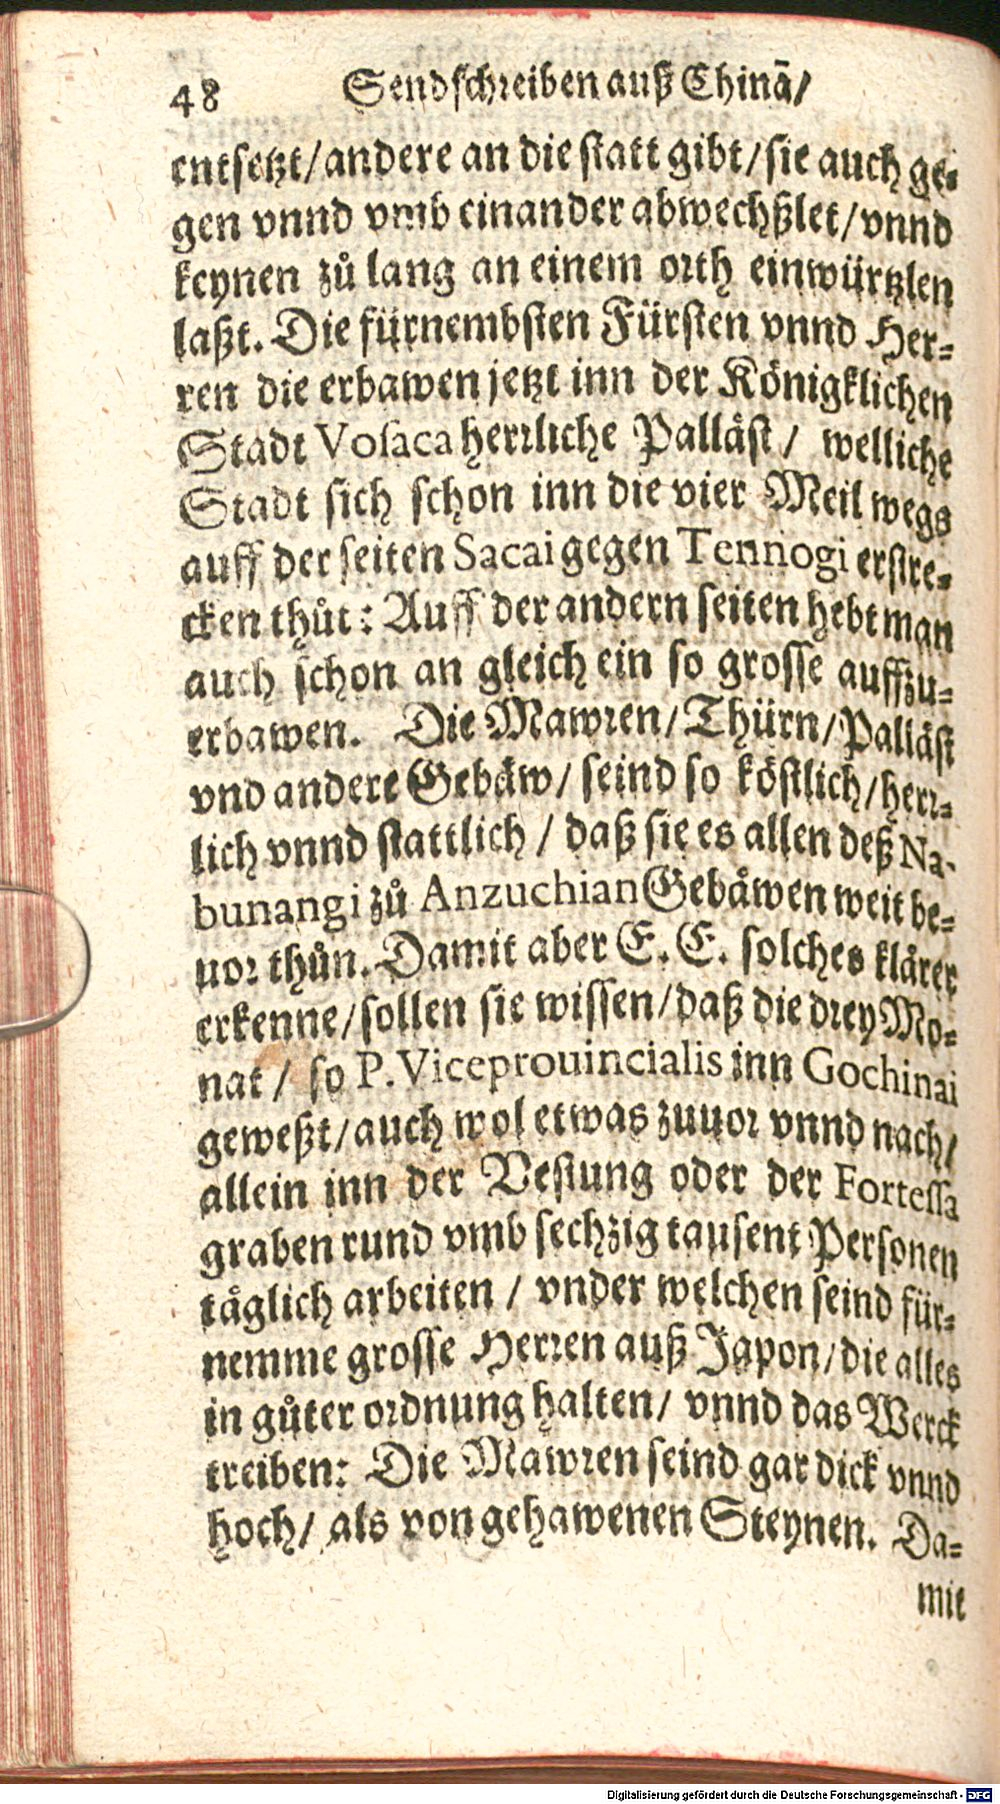 48 Sendschreiben auß Chinā/
entsetzt/andere an die statt gibt/sie auch ge-
gen vnnd vmb einander abwechßlet/vnnd
keynen zů lang an einem orth einwürtzlen
laßt. Die fürnembsten Fürsten vnnd Her-
ren die erbawen jetzt inn der Königklichen
Stadt Vosaca herrliche Palläst/ welliche
Stadt sich schon inn die vier Meil wegs
auff der seiten Sacai gegen Tennogi erstre-
cken thůt: Auff der andern seiten hebt man
auch schon an gleich ein so grosse auffzu-
erbawen. Die Mawren/Thürn/Palläst
vnd andere Gebäw/ seind so köstlich/herr-
lich vnnd stattlich / daß sie es allen deß Na-
bunangi zů Anzuchian Gebäwen weit be-
uor thůn. Damit aber E. E. solches klärer
erkenne/sollen sie wissen/daß die drey Mo-
nat / so P. Viceprouincialis inn Gochinai
geweßt/auch wol etwas zuuor vnnd nach/
allein inn der Vestung oder der Fortessa
graben rund vmb sechzig tausent Personen
täglich arbeiten / vnder welchen seind für-
nemme grosse Herren auß Japon/die alles
in gůter ordnung halten/ vnnd das Werck
treiben: Die Mawren seind gar dick vnnd
hoch/ als von gehawenen Steynen. Da-
mit
Digitalisierung gefördert durch die Deutsche Forschungsgemeinschaft - DFG